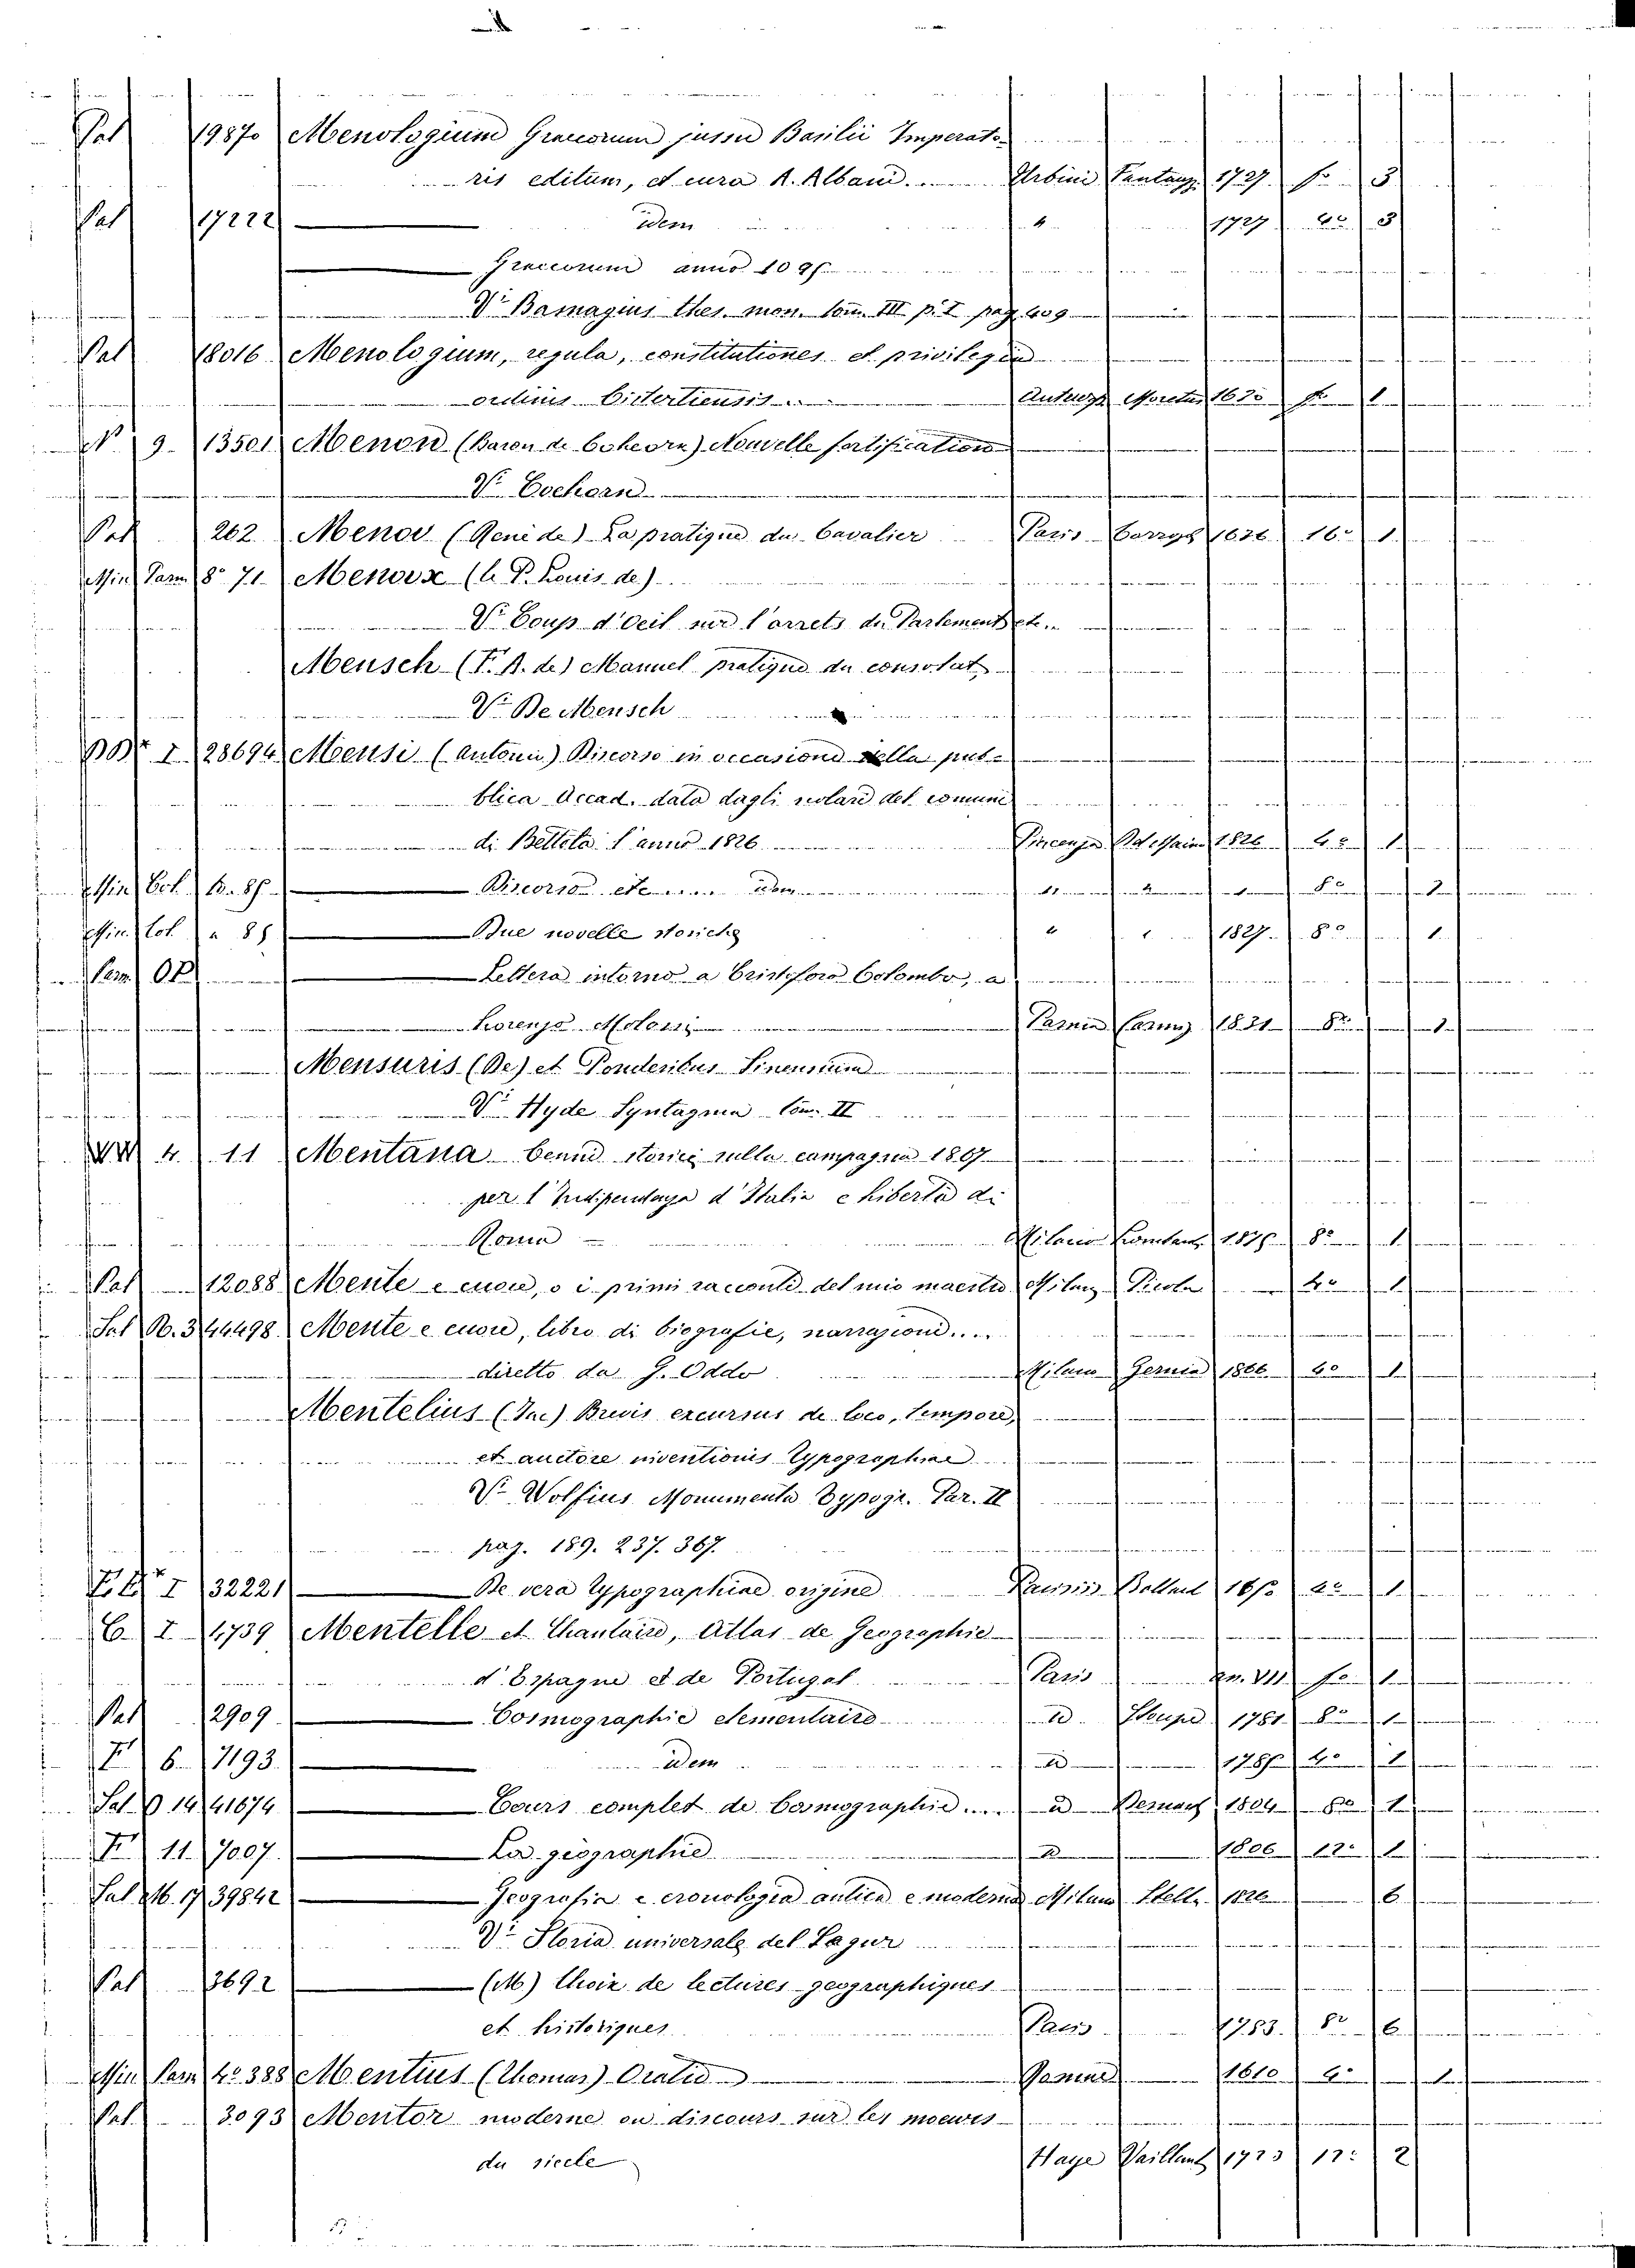 Pal 19870 Menologium Graecorum jussu Basilii Imperato-
ris editum, et cura A. Albani. Urbini 1727. fo 3
Pal 17222 idem " 1727 3
Graecorum anno
Vi Basnagius thes. mon. tom. III p. I pag. 409
Pal 18016 Menologium, regula, constitutiones et privilegia
ordinis Cistertiensis Antuerp Moretus 1630 fo 1
N. 9. 13501 Menon (Baron de Cohorn) Nouvelle fortification
Vi Coehorn
Pal 262 Menou (René de) La pratique du Cavalier Paris 16o 1
Min Parm 8o 71 Menoux (le P. Louis de)
Vi Coup d'oeil sur l'arrets du Parlement etc.
Mensch (F. A. de) Manuel pratique du consolat
Vi De Mensch
I 28694 Mensi (Antonii) Discorso in occasione della pub-
blica Accad. data dagli scolari del comune
di Bettola l'anno 1826 Piacenza 1826 4o 1
Min Col Discorso etc. idem " " " 8o 2
Min Col Due novelle storiche " " 1827. 8o 1
Parm Lettera intorno a Cristoforo Colombo, a
Lorenzo Molossi Parma 1831 8o 1
Mensuris (De) et Ponderibus Sinensium
Vi Hyde Syntagma tom. II
4. 11 Mentana cenni storici sulla campagna 1867
per l'Indipendenza d'Italia e Libertà di
Roma Milano 8o 1
Pal 12088 Mente e cuore, o i primi racconti del mio maestro Milano 4o 1
Sal B. 3 44498 Mente e cuore, libro di biografie, narrazioni....
diretto da G. Oddo Milano Gernia 1866 4o 1
Mentelius (Jac) Brevis excursus de loco, tempore,
et auctore inventionis Typographiae
Vi Wolfius Monumenta Typogr. Par. II
pag. 189. 237. 367.
I 32221 De vera typographiae origine Parisiis Ballard 1650 4o 1
C. I 4739 Mentelle et Chanlaire, Atlas de Geographie
d'Espagne et de Portugal Paris an. VII fo 1
Pal 2909 Cosmographie elementaire id. Stoupe 1781 8o 1
F 6. 7193 idem id 4o 1
Sal D 14 41674 Cours complet de Cosmographie.... id Bernard 1804 8o 1
F 11. 7007 La géographie id 1806 12o 1
Sal M. 17 39842 Geografia e cronologia antica e moderna Milano Stella 1826 6
Vi Storia universale del Segur
Pal 3692 (M) Choix de lectures geographiques
et historiques Paris 1783. 8o 6
Min Parm 4o 388 Mentius (Thomas) Oratio Parmae 1610 4o 1
Pal. 3093 Mentor moderne ou discours sur les moeurs
du siecle Haye Vaillant 1723 12o 2